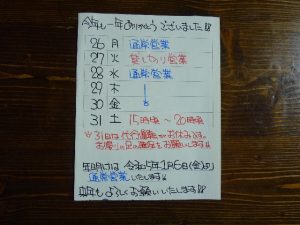 今年も一年ありがとうございました!!
26 月 通常営業
27 火 貸しきり営業
28 水 通常営業
29 木
30 金
31 土 15時頃〜20時頃
※31日は代行運転がお休みの為
お帰りの足の確保をお願いします!!
年明けは 令和5年1月6日(金)より
通常営業いたします!!
来年もよろしくお願いいたします!!